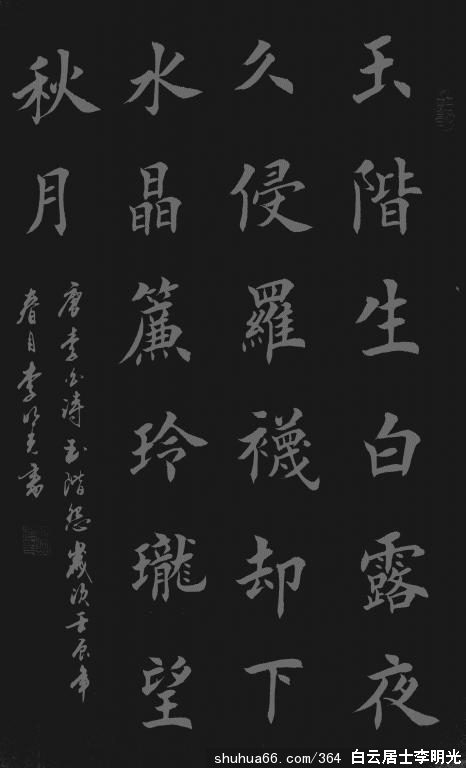 玉階生白露夜
久侵羅襪却下
水晶簾玲瓏望
秋月
唐李白詩玉階怨歲次壬辰年
春月李明光書
shuhua66.com/364 白云居士李明光